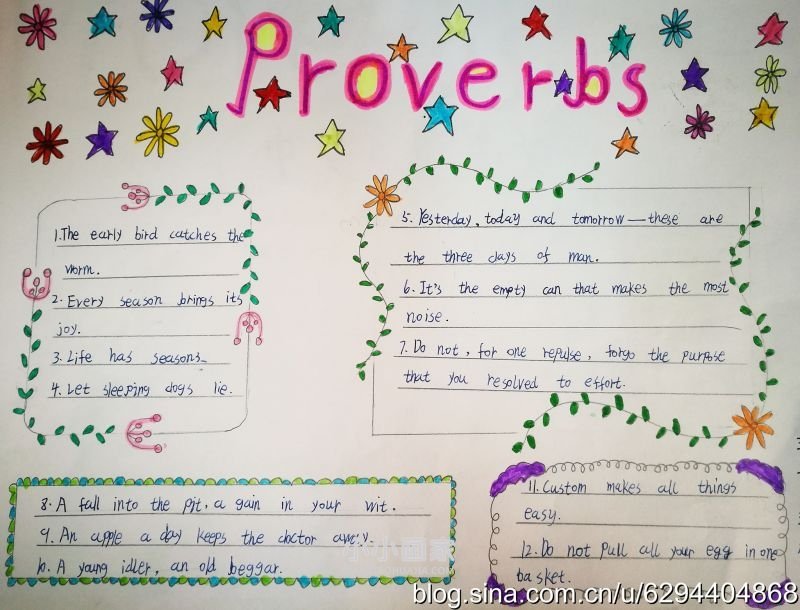 Proverbs
1.The early bird catches the
worm.
2. Every season brings its
joy.
3. Life has seasons.
4. Let sleeping dogs lie.
5. Yesterday, today and tomorrow—these are
the three days of man.
6. It's the empty can that makes the most
noise.
7. Do not, for one repulse, forgo the purpose
that you resolved to effort.
8. A fall into the pit, a gain in your wit.
9. An apple a day keeps the doctor away.
10. A young idler, an old beggar.
11. Custom makes all things
easy.
12. Do not pull all your egg in one
basket.
小小画家
blog.sina.com.cn/u/6294404868